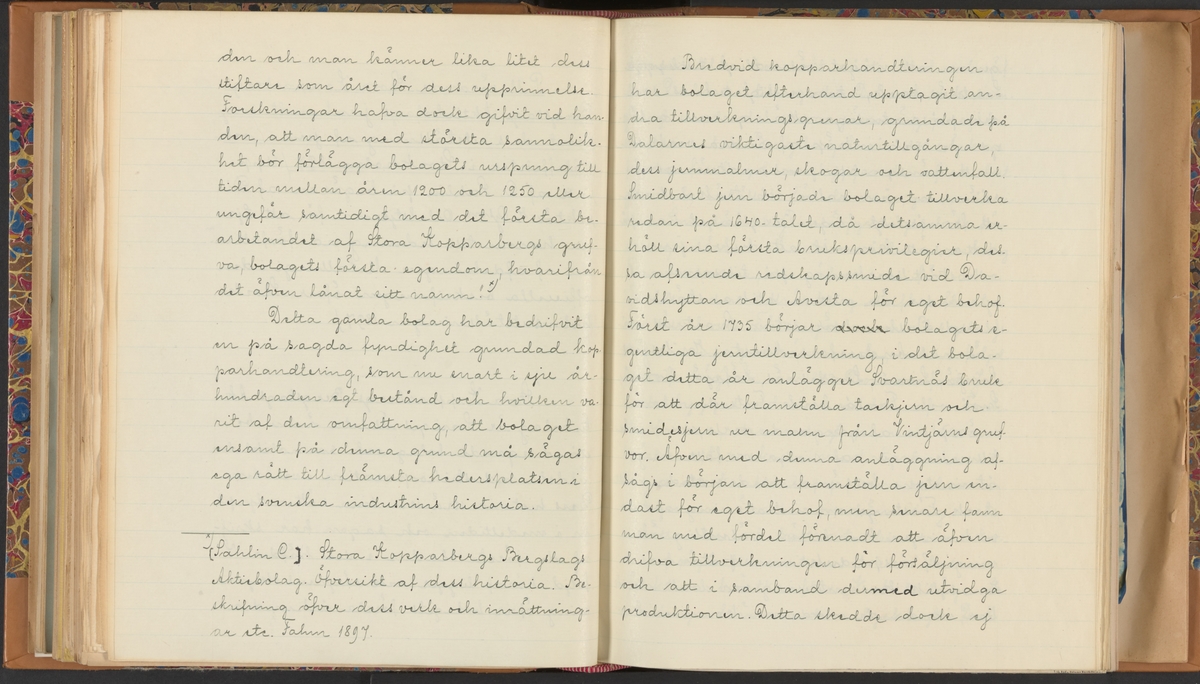 den och man känner lika litet dess
stiftare som året för dess upprinnelse.
Forskningar hafva dock gifvit vid han-
den, att man med största sannolik-
het bör förlägga bolagets ursprung till
tiden mellan åren 1200 och 1250 eller
ungefär samtidigt med det första be-
arbetandet af Stora Kopparbergs gruf-
va, bolagets första egendom, hvarifrån
det äfven lånat sitt namn! *)
Detta gamla bolag har bedrifvit
en på sagda fyndighet grundad kop-
parhandtering, som nu snart i sju år-
hundraden egt bestånd och hvilken va-
rit af den omfattning, att bolaget
ensamt på denna grund må sägas
ega rätt till främsta hedersplatsen i
den svenska industrins historia.
*) [Sahlin C.]. Stora Kopparbergs Bergslags
Aktiebolag. Öfversikt af dess historia. Be-
skrifning öfver dess verk och inrättning-
ar etc. Falun 1897.
Bredvid kopparhandteringen
har bolaget efterhand upptagit an-
dra tillverkningsgrenar, grundade på
Dalarnes viktigaste naturtillgångar,
dess jernmalmer, skogar och vattenfall.
Smidbart jern började bolaget tillverka
redan på 1640-talet, då detsamma er-
höll sina första bruksprivilegier, des-
sa afseende redskapssmide vid Da-
vidshyttan och Avesta för eget behof.
Först år 1735 börjar dock bolagets e-
gentliga jerntillverkning, i det bola-
get detta år anlägger Svartnäs bruk
för att där framställa tackjern och
smidesjern ur malm från Vintjärns gruf-
vor. Äfven med denna anläggning af-
sågs i början att framställa jern en-
dast för eget behof, men senare fann
man med fördel förenadt att äfven
drifva tillverkningen för försäljning
och att i samband dermed utvidga
produktionen. Detta skedde dock ej